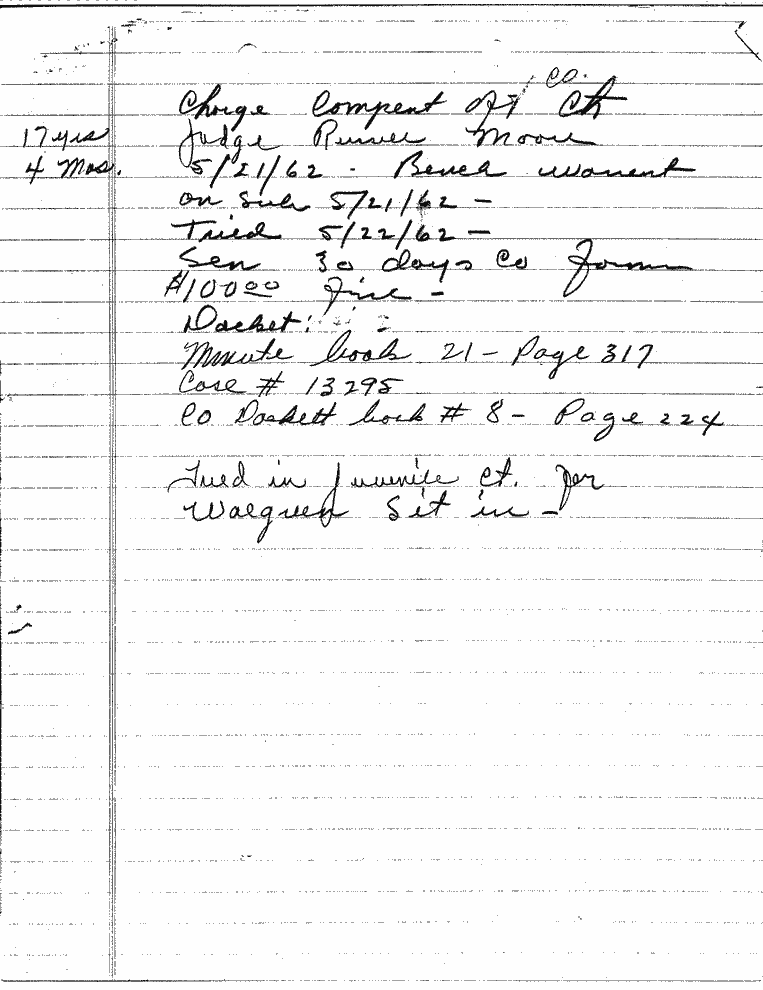 Charge Compent of Co. Ct
17 yrs Judge Russel Moore
4 Mos. 5/21/62 - Bench warrent
on Sub 5/21/62 -
Tried 5/22/62 -
Sen 30 days Co
$100.00 Fine -
Docket:
Minute book 21 - Page 317
Case # 13295
Co Dockett book # 8 - Page 224
Tried in Juvenile Ct. for
Walgreen Sit in -